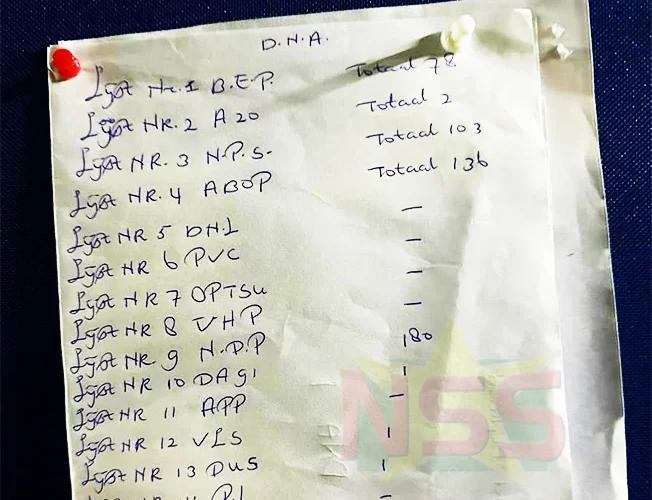 D.N.A.
Lijst Nr.1 B.E.P. Totaal 78
Lijst NR.2 A20 Totaal 2
Lijst NR.3 N.P.S. Totaal 103
Lijst NR.4 ABOP Totaal 136
Lijst NR 5 DNL —
Lijst NR 6 PVC —
Lijst NR 7 OPTSU —
Lijst NR 8 VHP —
Lijst NR 9 N.D.P 180
Lijst NR 10 DAgi 1
Lijst NR 11 APP —
Lijst NR 12 VLS 1
Lijst NR 13 DUS 1
NSS